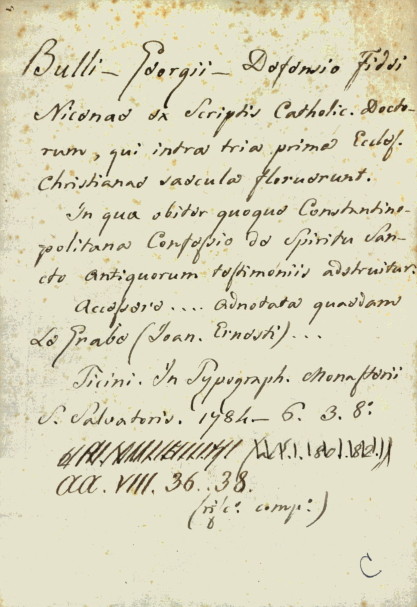 Bulli - Georgii - Defensio Fidei
Nicenae ex Scriptis Catholic. Docto-
rum, qui intra tria prima Eccles.
Christianae saecula floruerunt.
In qua obiter quoque Constantino-
politana Confessio de Spiritu San-
cto Antiquorum testimoniis adstruitur.
Accessere .... Adnotata quaedam
de Grabe (Joan. Ernesti) ...
Ticini. In Typograph. Monasterii
S. Salvatoris. 1784 - 6. 3. 8.º
aa. VIII. 36. 38.
comp.º)
C